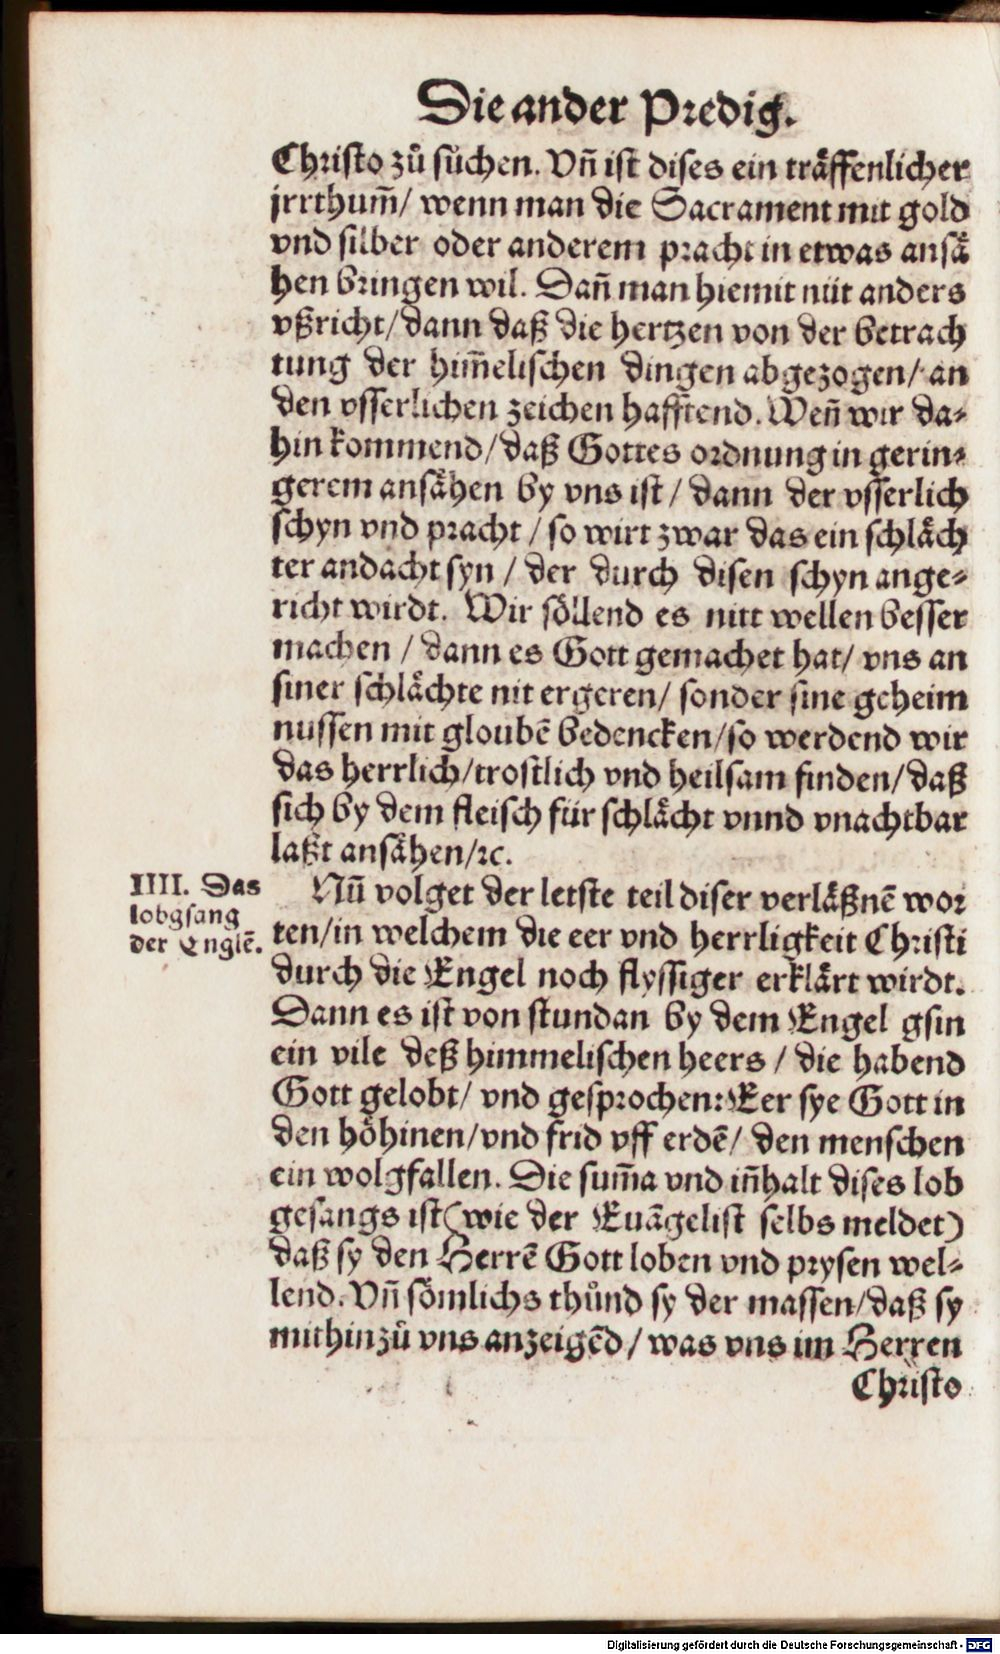 Die ander Predig.
Christo zů sůchen. Vñ ist dises ein träffenlicher
jrrthum̃/ wenn man die Sacrament mit gold
vnd silber oder anderem pracht in etwas ansä
hen bringen wil. Dañ man hiemit nüt anders
vßricht/dann daß die hertzen von der betrach
tung der him̃elischen dingen abgezogen/ an
den vsserlichen zeichen hafftend. Weñ wir da-
hin kommend/daß Gottes ordnung in gerin-
gerem ansähen by vns ist/ dann der vsserlich
schyn vnd pracht/ so wirt zwar das ein schläch
ter andacht syn/ der durch disen schyn ange-
richt wirdt. Wir söllend es nitt wellen besser
machen/ dann es Gott gemachet hat/ vns an
siner schlächte nit ergeren/ sonder sine geheim
nussen mit gloubẽ bedencken/so werdend wir
das herrlich/trostlich vnd heilsam finden/daß
sich by dem fleisch für schlächt vnnd vnachtbar
laßt ansähen/ꝛc.
IIII. Das
lobgsang
der Englẽ.
Nũ volget der letste teil diser verläßnẽ wor
ten/in welchem die eer vnd herrligkeit Christi
durch die Engel noch flyssiger erklärt wirdt.
Dann es ist von stundan by dem Engel gsin
ein vile deß himmelischen heers/ die habend
Gott gelobt/ vnd gesprochen: Eer sye Gott in
den höhinen/vnd frid vff erdẽ/ den menschen
ein wolgfallen. Die sum̃a vnd iñhalt dises lob
gesangs ist(wie der Euãgelist selbs meldet)
daß sy den Herrẽ Gott loben vnd prysen wel-
lend. Vñ sömlichs thůnd sy der massen/daß sy
mithinzů vns anzeigẽd/ was vns im Herren
Christo
Digitalisierung gefördert durch die Deutsche Forschungsgemeinschaft - DFG